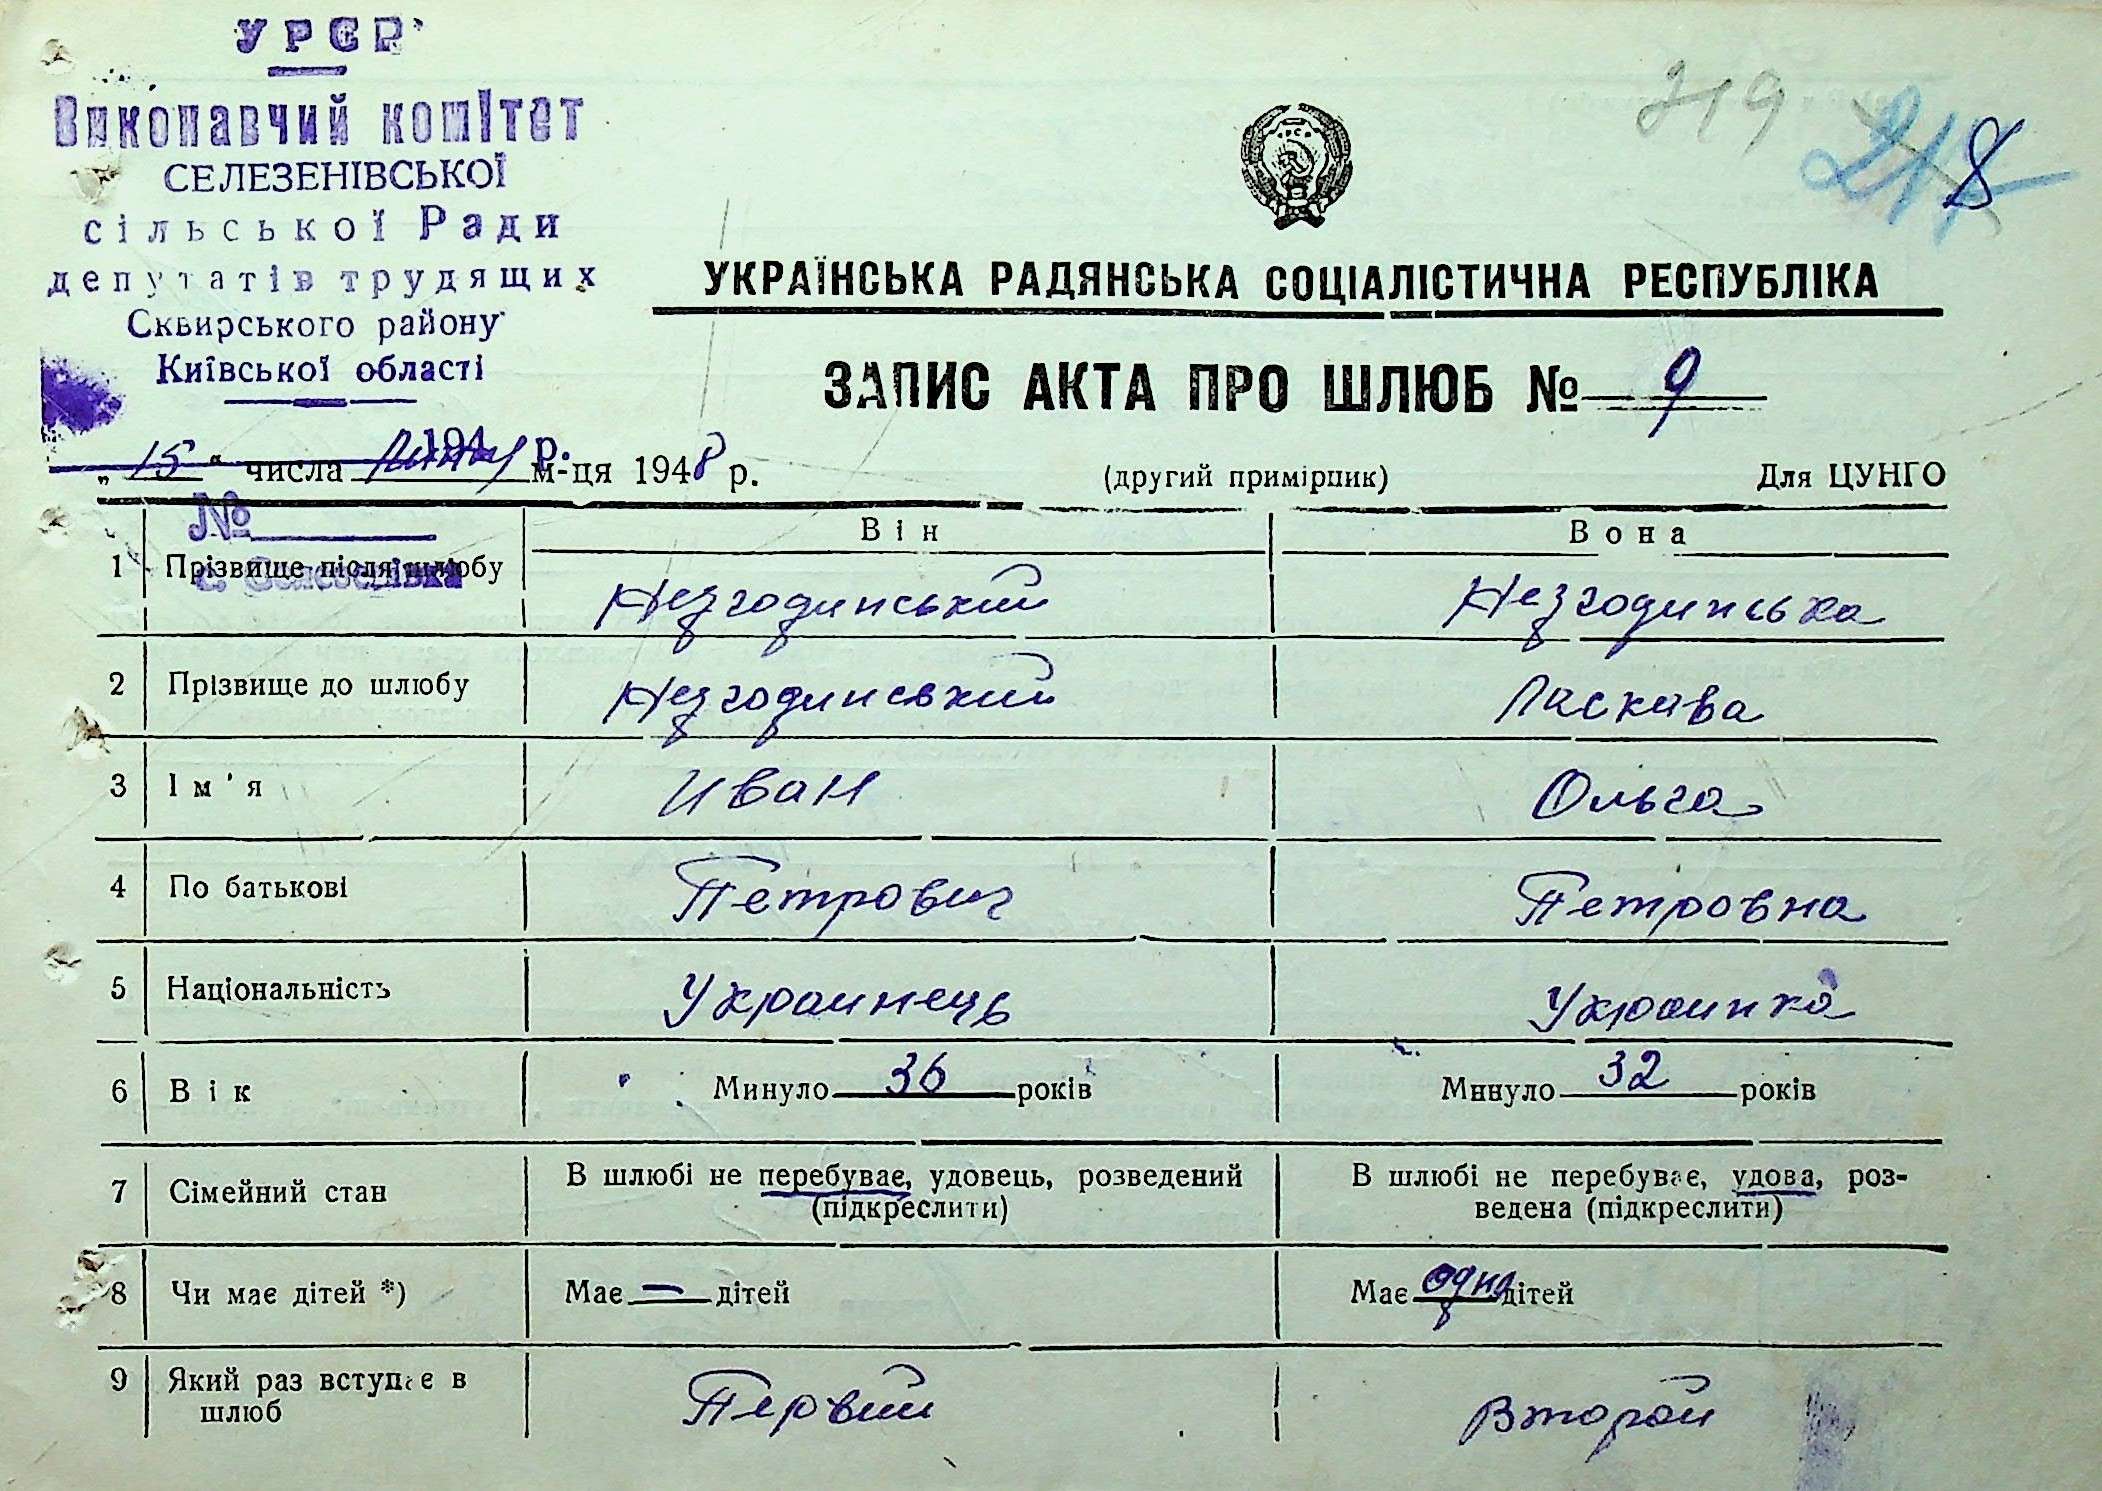 УРСР
Виконавчий комітет
СЕЛЕЗЕНІВСЬКОЇ
сільської Ради
депутатів трудящих
Сквирського району
Київської області
194 р.
№
с. Селезенівка
319
218
УКРАЇНСЬКА РАДЯНСЬКА СОЦІАЛІСТИЧНА РЕСПУБЛІКА
ЗАПИС АКТА ПРО ШЛЮБ № 9
„15“ числа м-ця 1948 р. (другий примірник) Для ЦУНГО
Він Вона
1 Прізвище після шлюбу Незгодинський Незгодинська
2 Прізвище до шлюбу Незгодинський Ласкава
3 Ім'я Иван Ольга
4 По батькові Петрович Петровна
5 Національність Украинець Украинка
6 Вік Минуло 36 років Минуло 32 років
7 Сімейний стан В шлюбі не перебуває, удовець, розведений В шлюбі не перебуває, удова, роз-
(підкреслити) ведена (підкреслити)
8 Чи має дітей *) Має — дітей Має одно дітей
9 Який раз вступає в Первий Второй
шлюб